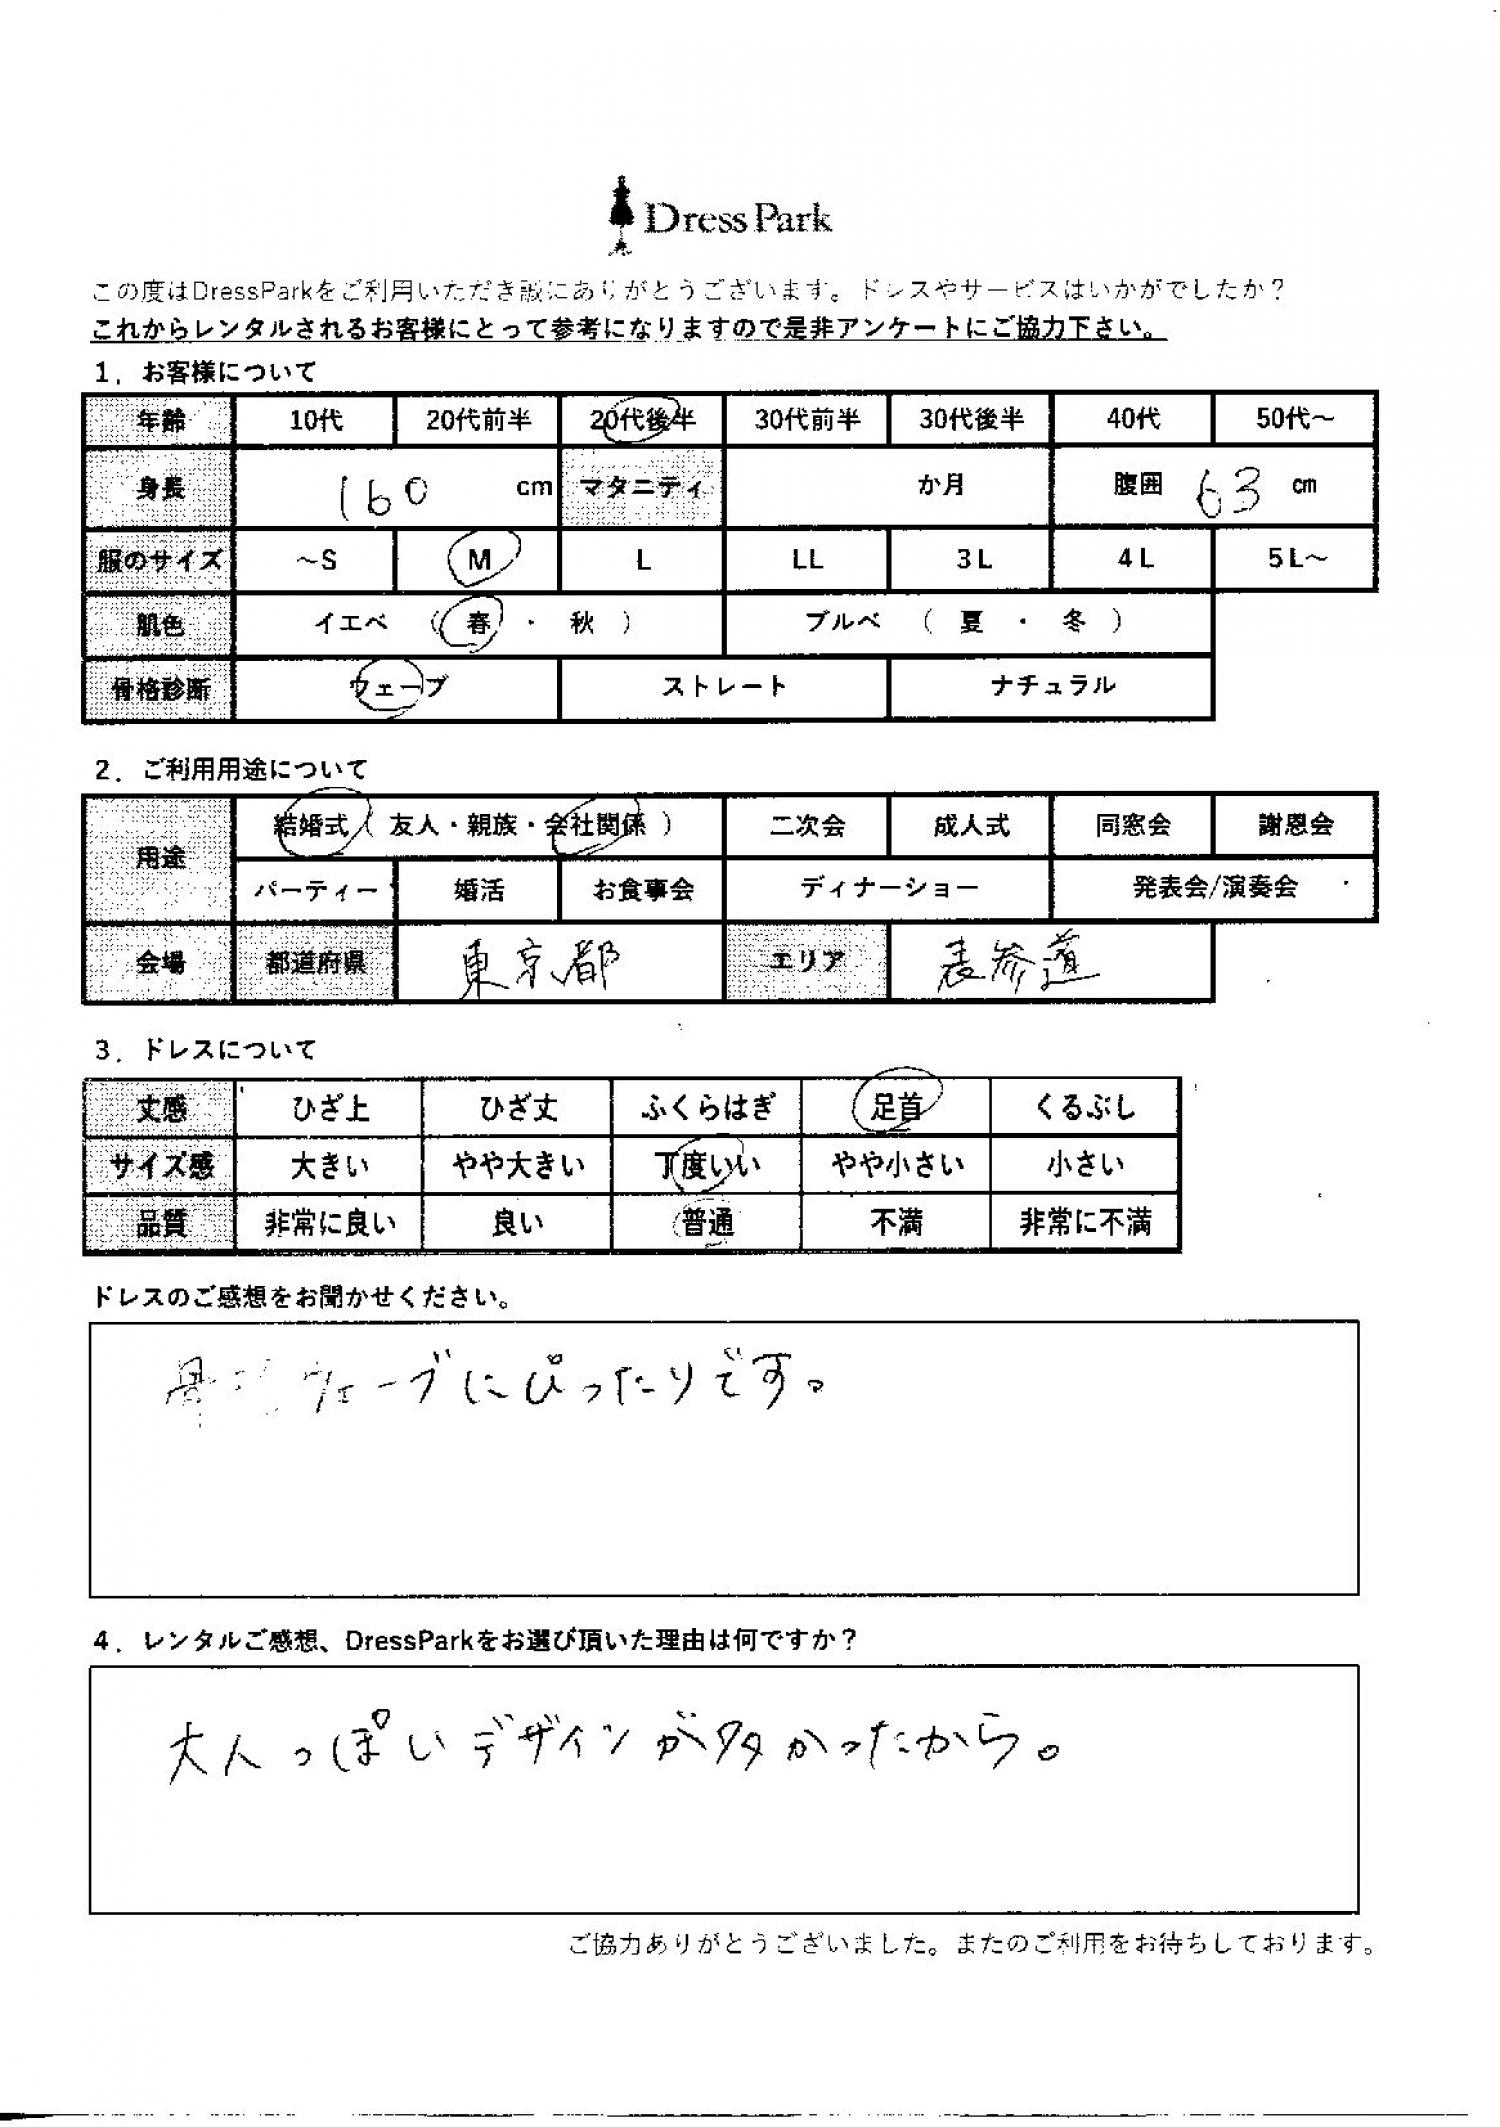 Dress Park
この度はDressParkをご利用いただき誠にありがとうございます。ドレスやサービスはいかがでしたか？
これからレンタルされるお客様にとって参考になりますので是非アンケートにご協力下さい。
1．お客様について
年齢 10代 20代前半 20代後半 30代前半 30代後半 40代 50代～
身長 160 cm マタニティ か月 腹囲 63 cm
服のサイズ ～S M L LL 3L 4L 5L～
肌色 イエベ （ 春 ・ 秋 ） ブルベ （ 夏 ・ 冬 ）
骨格診断 ウェーブ ストレート ナチュラル
2．ご利用用途について
用途 結婚式（ 友人・親族・会社関係 ） 二次会 成人式 同窓会 謝恩会
パーティー 婚活 お食事会 ディナーショー 発表会/演奏会
会場 都道府県 東京都 エリア 表参道
3．ドレスについて
丈感 ひざ上 ひざ丈 ふくらはぎ 足首 くるぶし
サイズ感 大きい やや大きい 丁度いい やや小さい 小さい
品質 非常に良い 良い 普通 不満 非常に不満
ドレスのご感想をお聞かせください。
骨 ウェーブにぴったりです。
4．レンタルご感想、DressParkをお選び頂いた理由は何ですか？
大人っぽいデザインが多かったから。
ご協力ありがとうございました。またのご利用をお待ちしております。